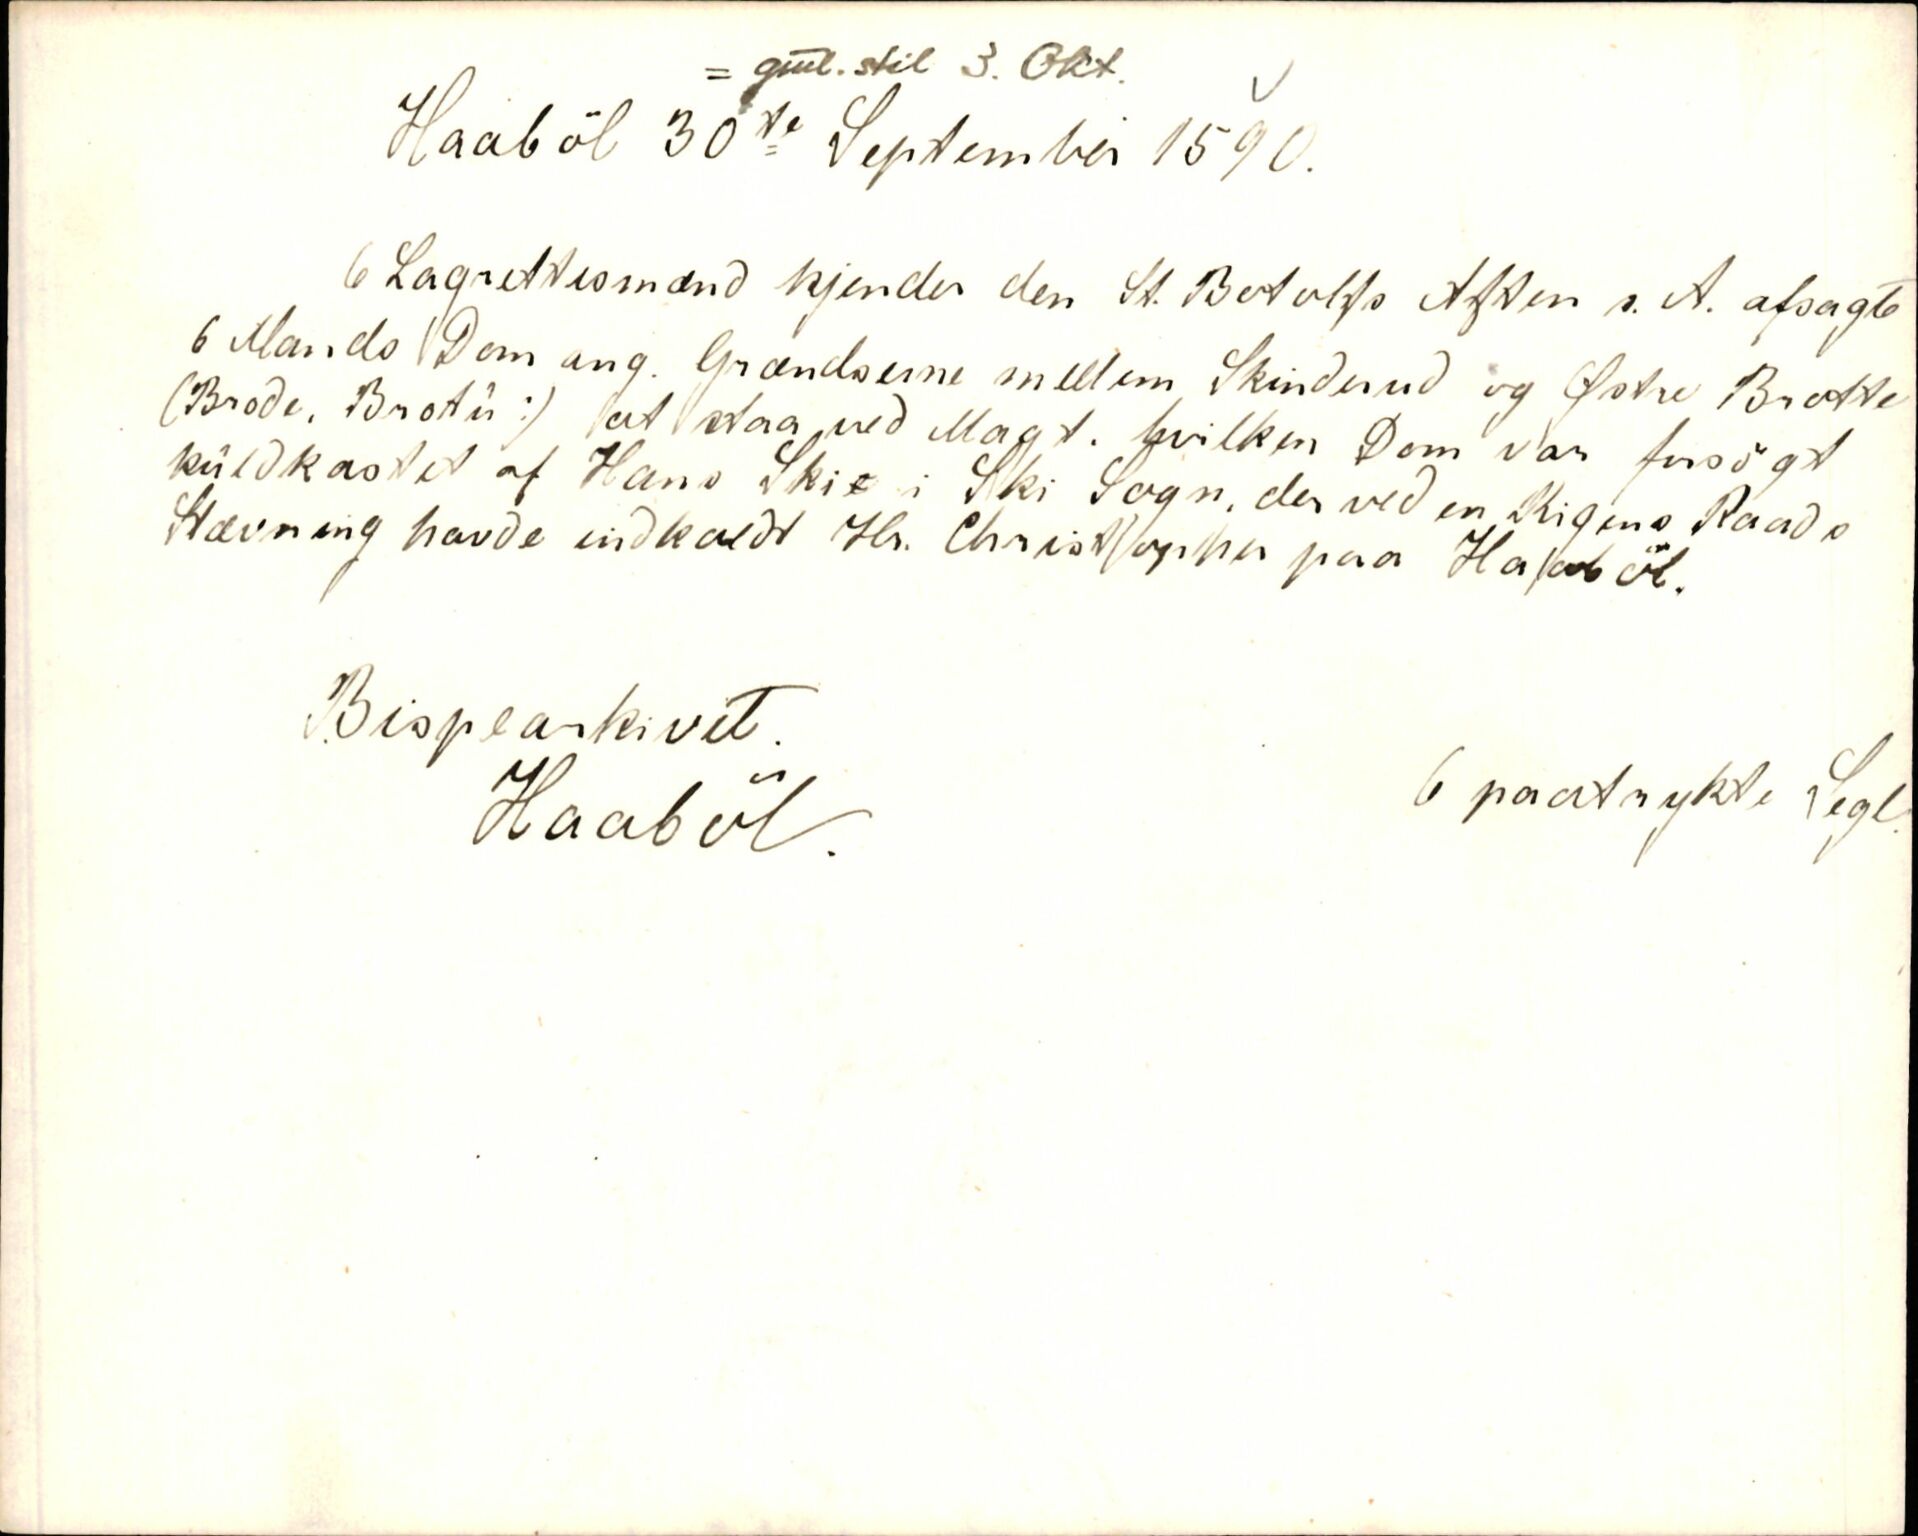 = gml. stil 3. Okt.
Haaböl 30te September 1590.
6 Lagrettesmænd kjender den St. Botolfs Aften s. A. afsagte
6 Mands Dom ang. Grændserne mellem Skinderud og Østre Brotte
(Brode, Brotű:) at staa ved Magt. hvilken Dom var forsögt
kŭldkastet af Hans Skie i Ski Sogn, der ved en Rigens Raads
Stævning havde indkaldt Hr. Christopher paa Haaböl.
Bispearkivet.
Haaböl.
6 paatrykte Segl.